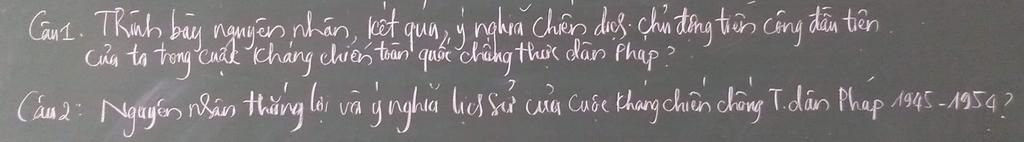 Câu 1. Trình bày nguyên nhân, kết quả, ý nghĩa chiến dịch chủ động tiến công đầu tiên
của ta trong cuộc kháng chiến toàn quốc chống thực dân Pháp?
Câu 2: Nguyên nhân thắng lợi và ý nghĩa lịch sử của cuộc kháng chiến chống T.dân Pháp 1945-1954?